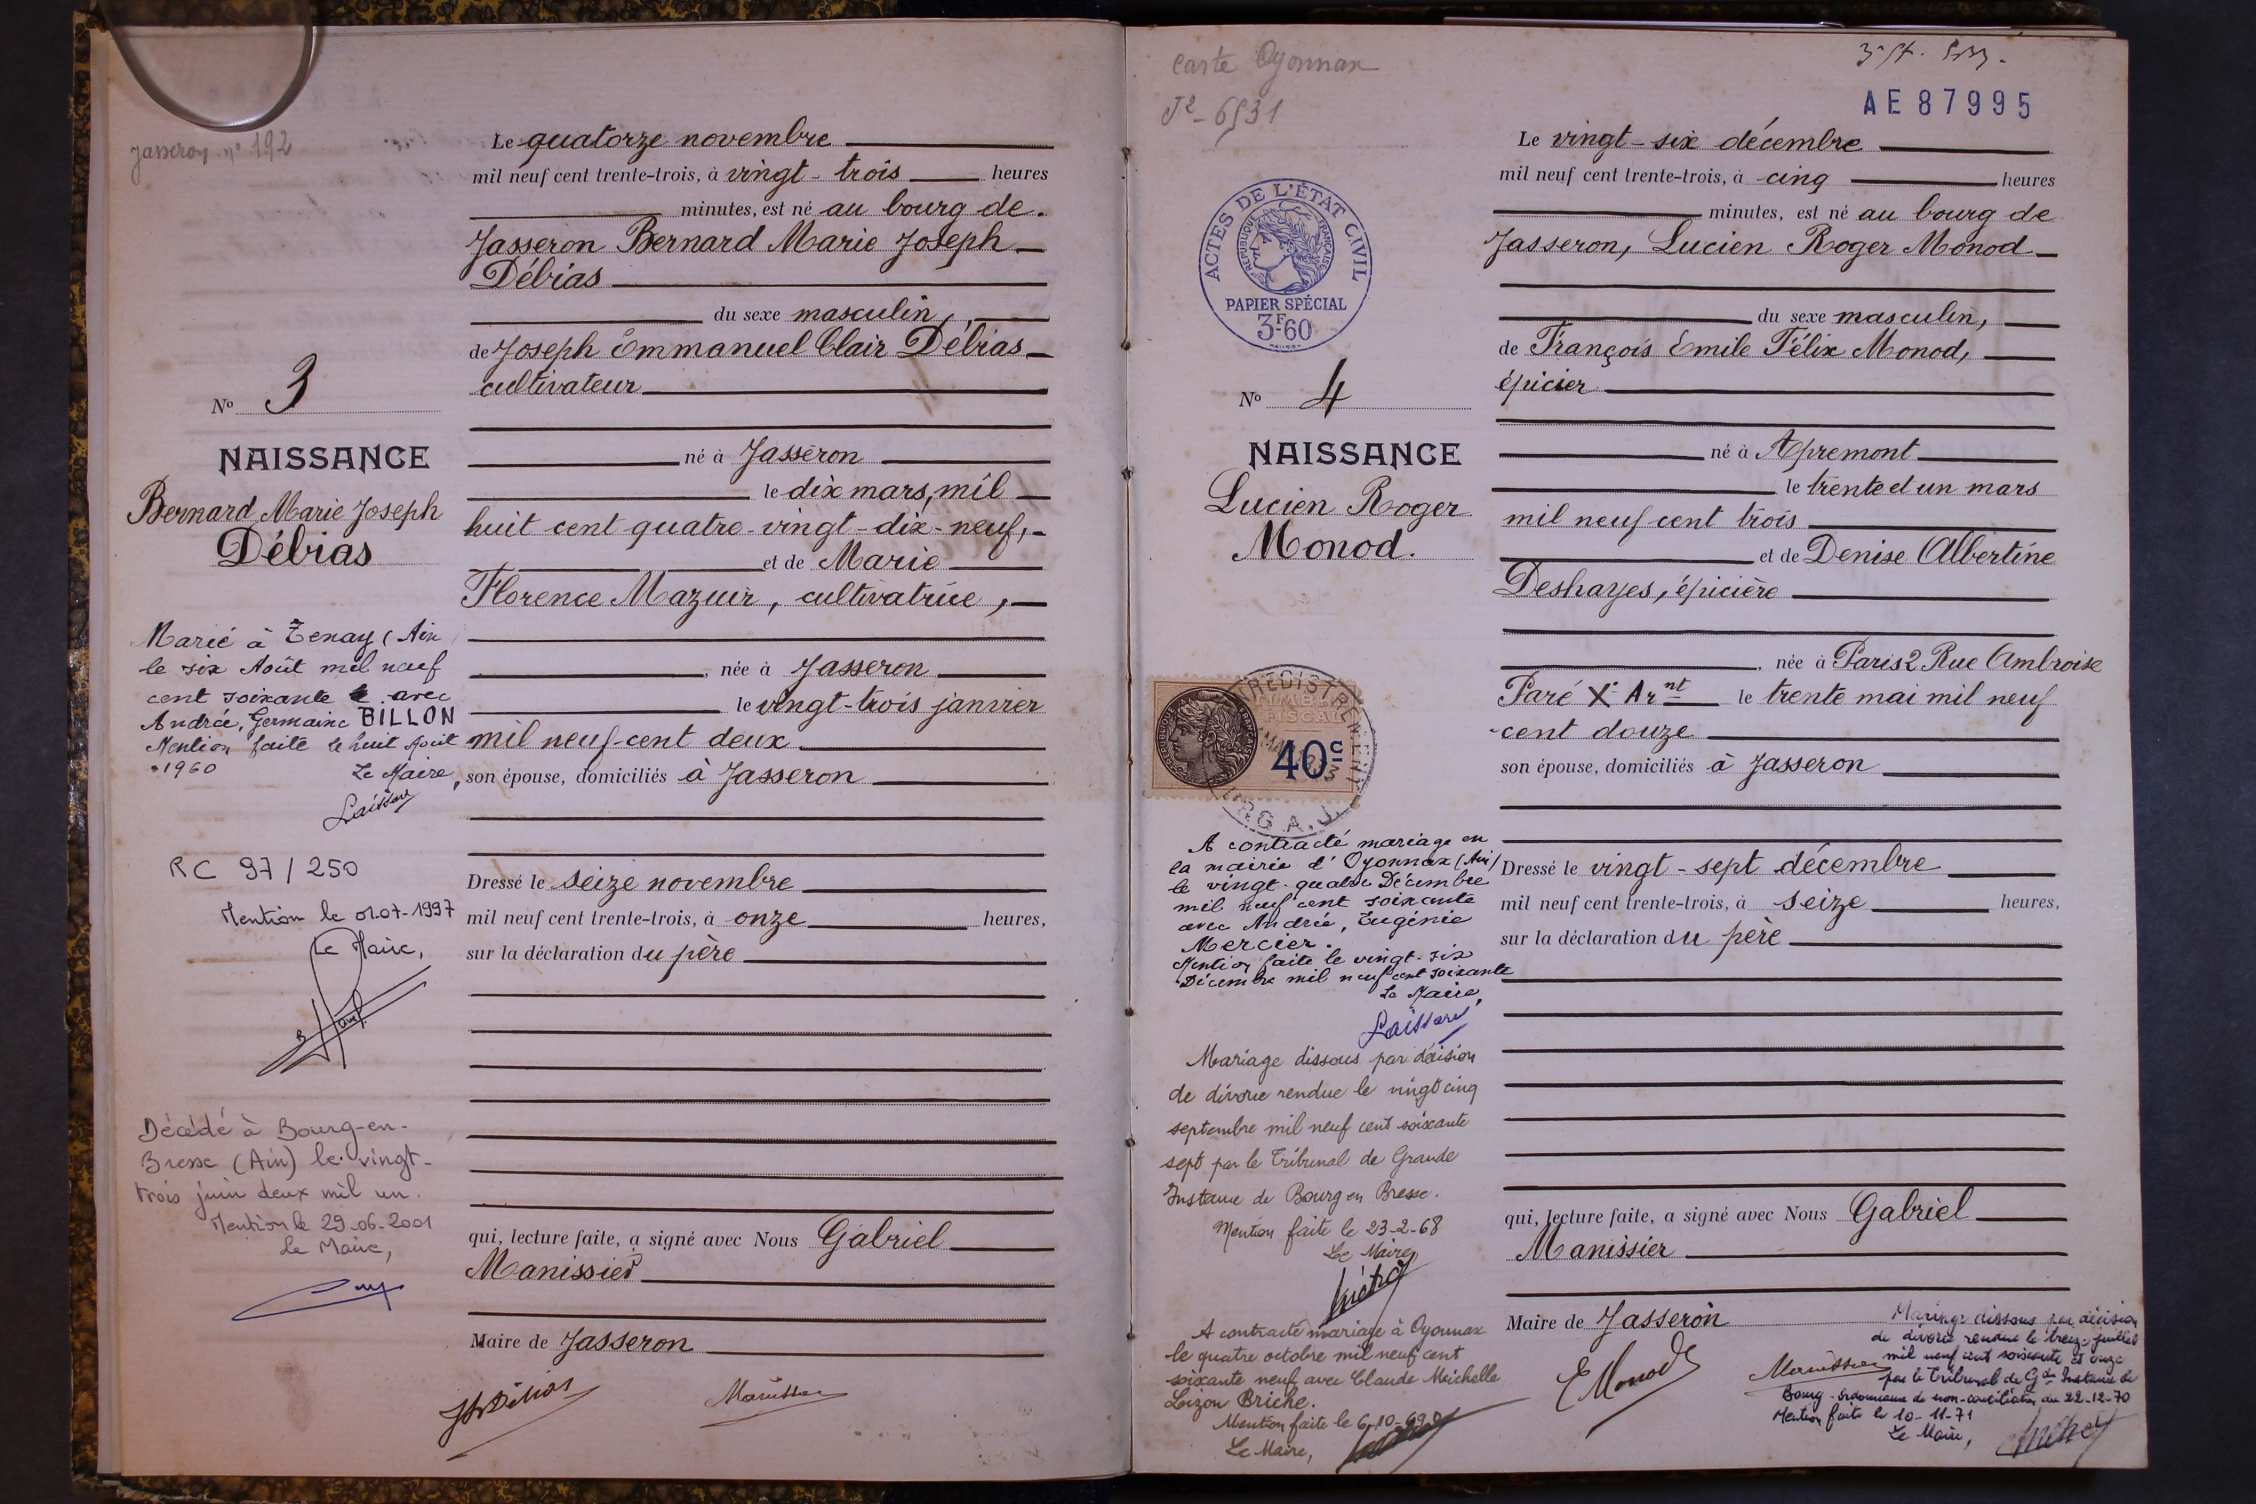 Jasseron n° 192
Le quatorze novembre
mil neuf cent trente-trois, à vingt-trois heures
minutes, est né au bourg de
Jasseron Bernard Marie Joseph
Débias
du sexe masculin,
de Joseph Emmanuel Clair Débias
cultivateur
né à Jasseron
le dix mars, mil
huit cent quatre-vingt-dix-neuf,
et de Marie
Florence Mazuir, cultivatrice,
, née à Jasseron
le vingt-trois janvier
mil neuf cent deux
son épouse, domiciliés à Jasseron
Dressé le seize novembre
mil neuf cent trente-trois, à onze heures,
sur la déclaration du père
qui, lecture faite, a signé avec Nous Gabriel
Manissier
Maire de Jasseron
No 3
NAISSANCE
Bernard Marie Joseph
Débias
Marié à Tenay (Ain
le six Août mil neuf
cent soixante avec
Andrée, Germaine BILLON
Mention faite le huit Août
1960
Le Maire,
RC 97/250
Mention le 01-07-1997
Le Maire,
Décédé à Bourg-en-
Bresse (Ain) le vingt-
trois juin deux mil un.
Mention le 29-06-2001
Le Maire,
Carte Oyonnax
AE 87995
ACTES DE L'ÉTAT CIVIL
RÉPUBLIQUE FRANÇAISE
PAPIER SPÉCIAL
3F60
Le vingt-six décembre
mil neuf cent trente-trois, à cinq heures
minutes, est né au bourg de
Jasseron, Lucien Roger Monod
du sexe masculin,
de François Emile Félix Monod,
épicier
né à Apremont
le trente et un mars
mil neuf cent trois
et de Denise Albertine
Deshayes, épicière
, née à Paris 2 Rue Ambroise
Paré Xe Arnt le trente mai mil neuf
cent douze
son épouse, domiciliés à Jasseron
Dressé le vingt-sept décembre
mil neuf cent trente-trois, à seize heures,
sur la déclaration du père
qui, lecture faite, a signé avec Nous Gabriel
Manissier
Maire de Jasseron
No 4
NAISSANCE
Lucien Roger
Monod.
TIMBRE
FISCAL
40c
A contracté mariage en
la mairie d'Oyonnax (Ain)
le vingt-quatre Décembre
mil neuf cent soixante
avec Andrée, Eugénie
Mercier.
Mention faite le vingt-six
Décembre mil neuf cent soixante
Le Maire,
Mariage dissous par décision
de divorce rendue le vingt cinq
septembre mil neuf cent soixante
sept par le Tribunal de Grande
Instance de Bourg en Bresse.
Mention faite le 23-2-68
Le Maire
A contracté mariage à Oyonnax
le quatre octobre mil neuf cent
soixante neuf avec Claude Michelle
Loizon Briche.
Mention faite le 6-10-69
Le Maire,
E Monod
Mariage dissous par décision
de divorce rendue le treize juillet
mil neuf cent soixante et onze
par le Tribunal de Gde Instance de
Bourg - Ordonnance de non-conciliation du 22-12-70
Mention faite le 10-11-71
Le Maire,